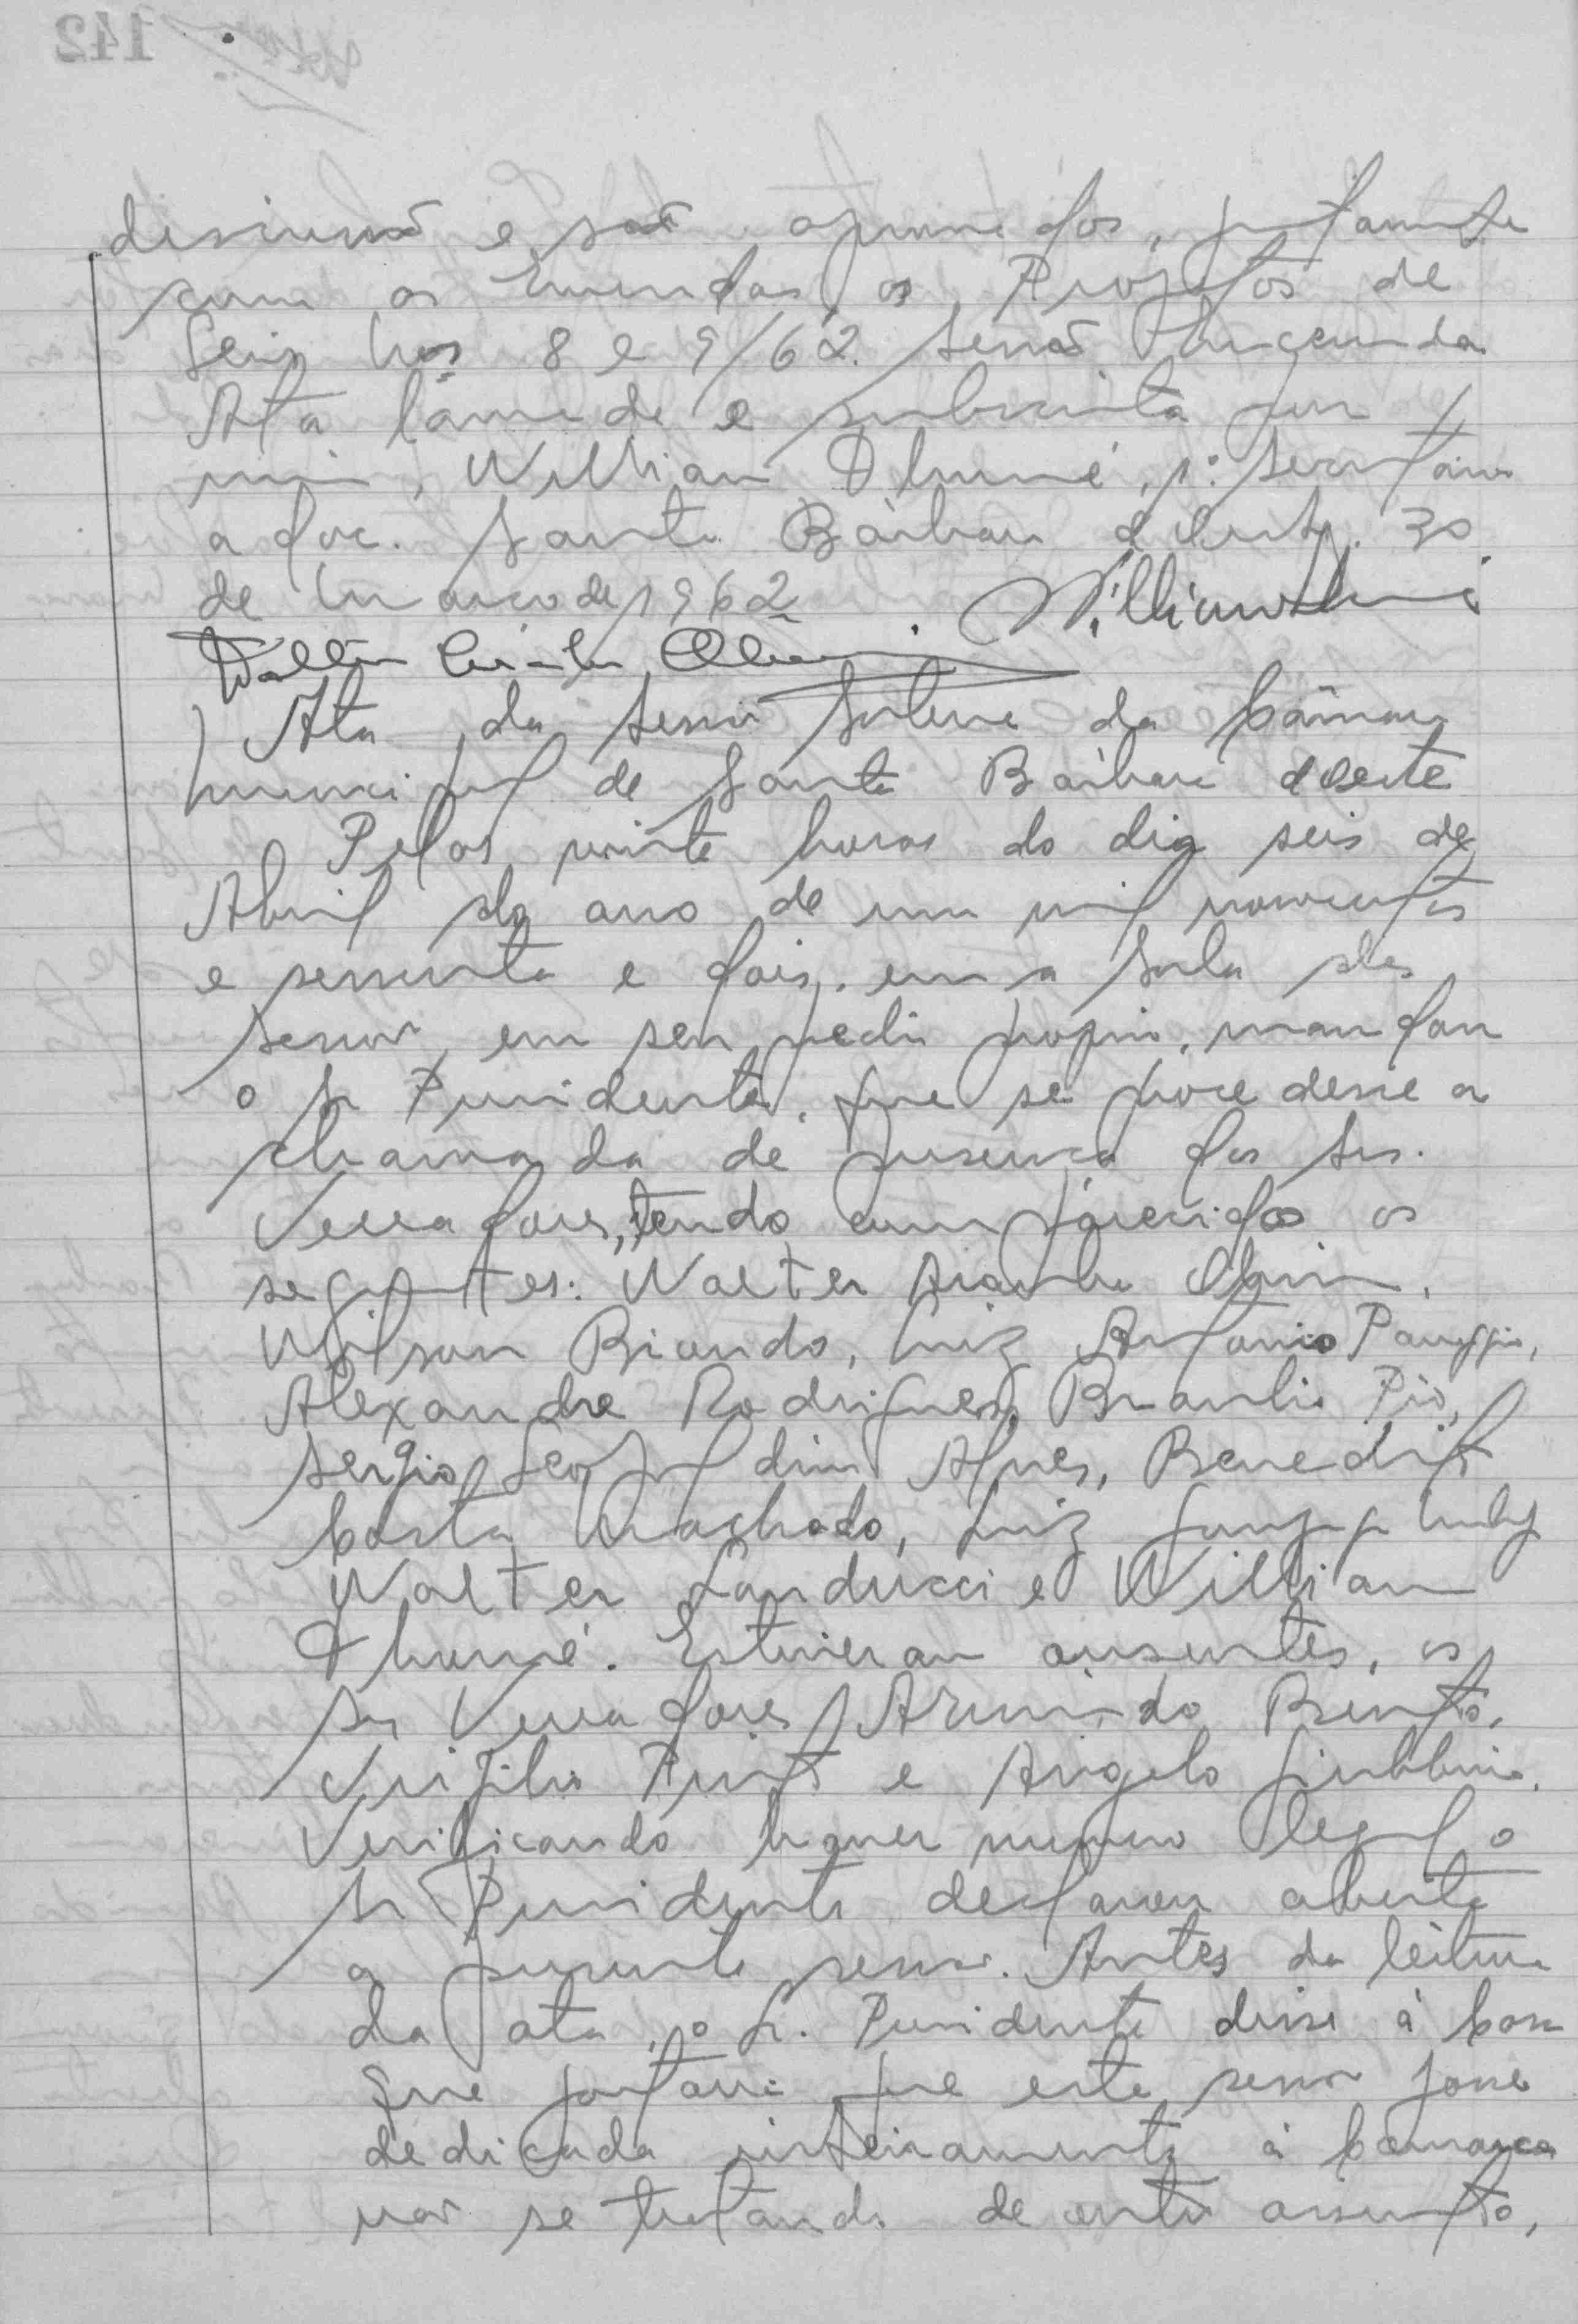 discussão e são aprovados, juntamente
com as Emendas, os Projetos de
Leis nos 8 e 9/62. Sendo
Ata lavrada e subscrita por
mim, Willian Dhumé, 1º Secretário
adoc. Santa Bárbara d'Oeste, 30
de Março de 1962
Ata da Sessão Solene da Câmara
Municipal de Santa Bárbara d'Oeste
Pelas vinte horas do dia seis de
Abril do ano de um mil novecentos
e sessenta e dois, em a Sala das
Sessões, em seu predio proprio, mandou
o Sr Presidente, que se procedesse a
chamada de presença dos Srs.
Vereadores, tendo comparecidos os
seguintes: Walter
Wilson Biondo, Luiz Antonio Panaggio,
Alexandre Rodrigues, Braulio Pio,
Sergio Leopoldino Alves, Benedito
Costa Machado, Luiz
Walter Landucci e Willian
Dhumé. Estiveram ausentes, os
Srs Vereadores Armindo Bento,
Virgilio e Angelo Giubbina.
Verificando haver numero legal o
Sr Presidente declarou aberta
a presente sessão. Antes da leitura
da ata, o Sr. Presidente disse à Casa
que gostaria que esta sessão fosse
dedicada inteiramente à Comarca
não se tratando de outro assunto,